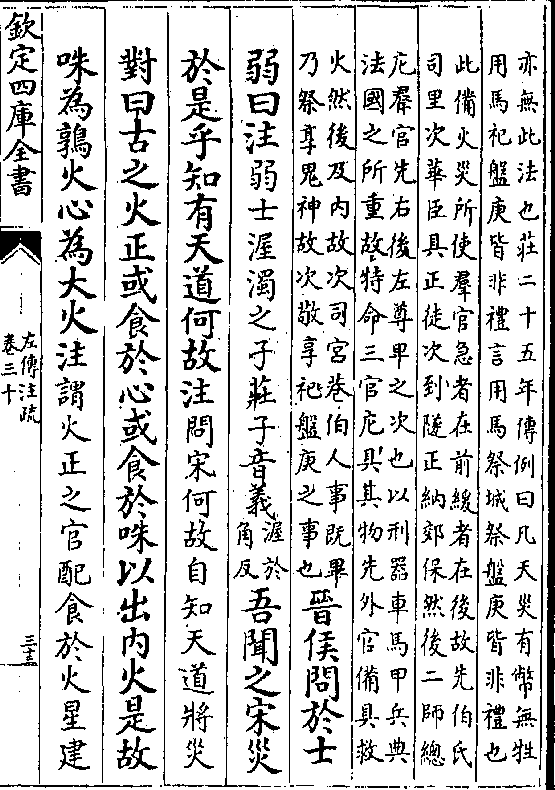 亦無此法也莊二十五年傳例曰凡天災有幣無牲
用馬祀盤庚皆非禮言用馬祭城祭盤庚皆非禮也
此備火災所使羣官急者在前緩者在後故先伯氏
司里次華臣具正徒次到隧正納郊保然後二師總
庀羣官先右後左尊卑之次也以刑器車馬甲兵典
法國之所重故特命三官庀具其物先外官備具救
火然後及内故次司宮巷伯人事既畢
乃祭享鬼神故次敬享祀盤庚之事也
晉侯問於士
弱曰注弱士渥濁之子莊子音義渥於角反吾聞之宋災
於是乎知有天道何故注問宋何故自知天道將災
對曰古之火正或食於心或食於咮以出内火是故
咮為鶉火心為大火注謂火正之官配食於火星建
欽定四庫全書
左傳注疏
卷三十
三十三